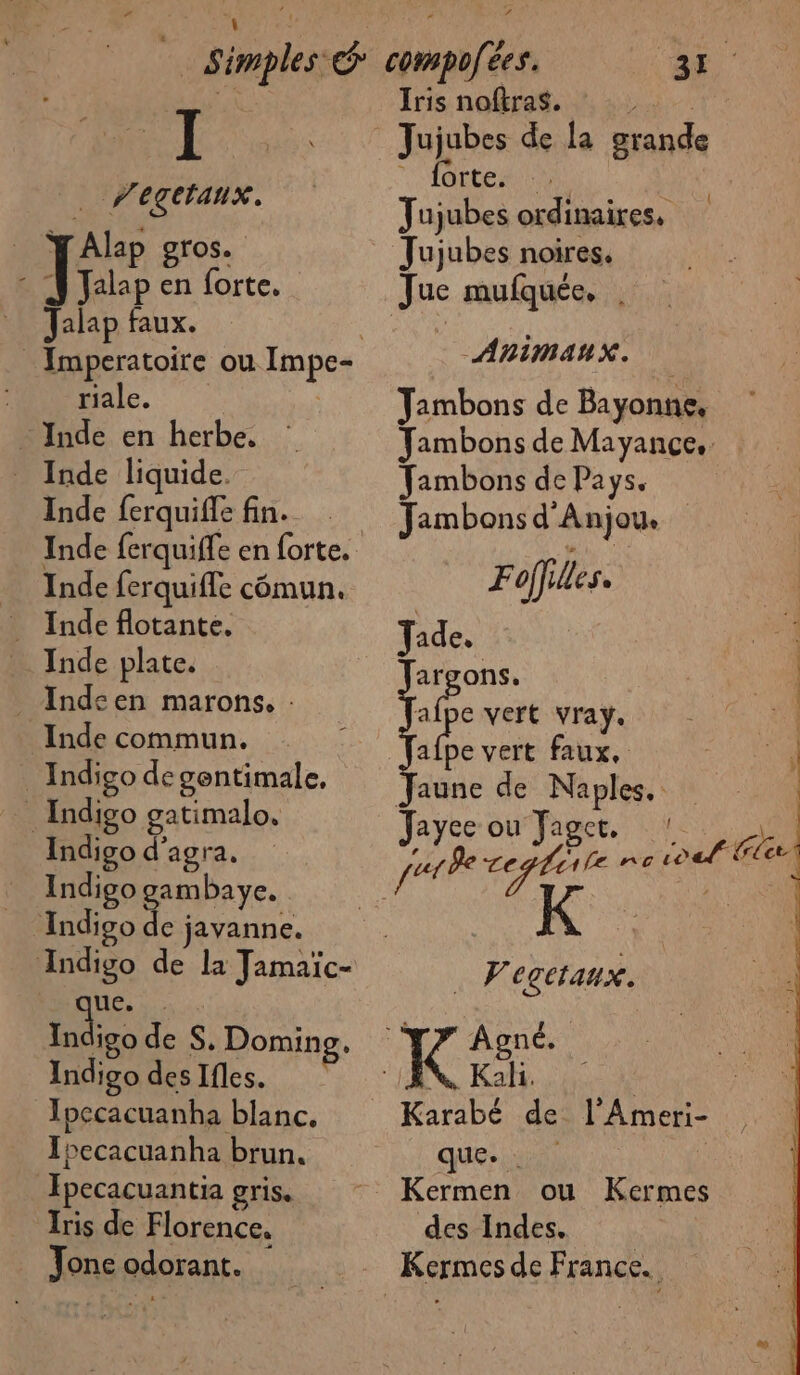 Simples & compoſées. 31
I
Vegetaux.
JAlap gros.
Jalap en ſorte.
Jalap faux.
Imperatoire ou Impe-
riale.
Inde en herbe.
Inde liquide.
Inde ſerquiſſe fin.
Inde ſerquiſſe en ſorte.
Inde ſerquiſſe cõmun.
Inde flotante.
Inde plate.
Inde en marons.
Inde commun.
Indigo de gentimale.
Indigo gatimalo.
Indigo d'agra.
Indigo gambaye.
Indigo de javanne.
Indigo de la Jamaïc-
que.
Indigo de S. Doming.
Indigo des Iſles.
Ipecacuanha blanc.
Ipecacuanha brun.
Ipecacuantia gris.
Iris de Florence.
Jonc odorant.
Iris noſtras.
Jujubes de la grande
ſorte.
Jujubes ordinaires.
Jujubes noires.
Juc muſquée.
Animaux.
Jambons de Bayonne.
Jambons de Mayance.
Jambons de Pays.
Jambons d'Anjou.
Foſſilles.
Jade.
Jargons.
Jaſpe vert vray.
Jaſpe vert faux.
Jaune de Naples.
Jayee ou Jaget.
K
Vegetaux.
KAgné.
Kali.
Karabé de l'Ameri-
que.
Kermen ou Kermes
des Indes.
Kermes de France.